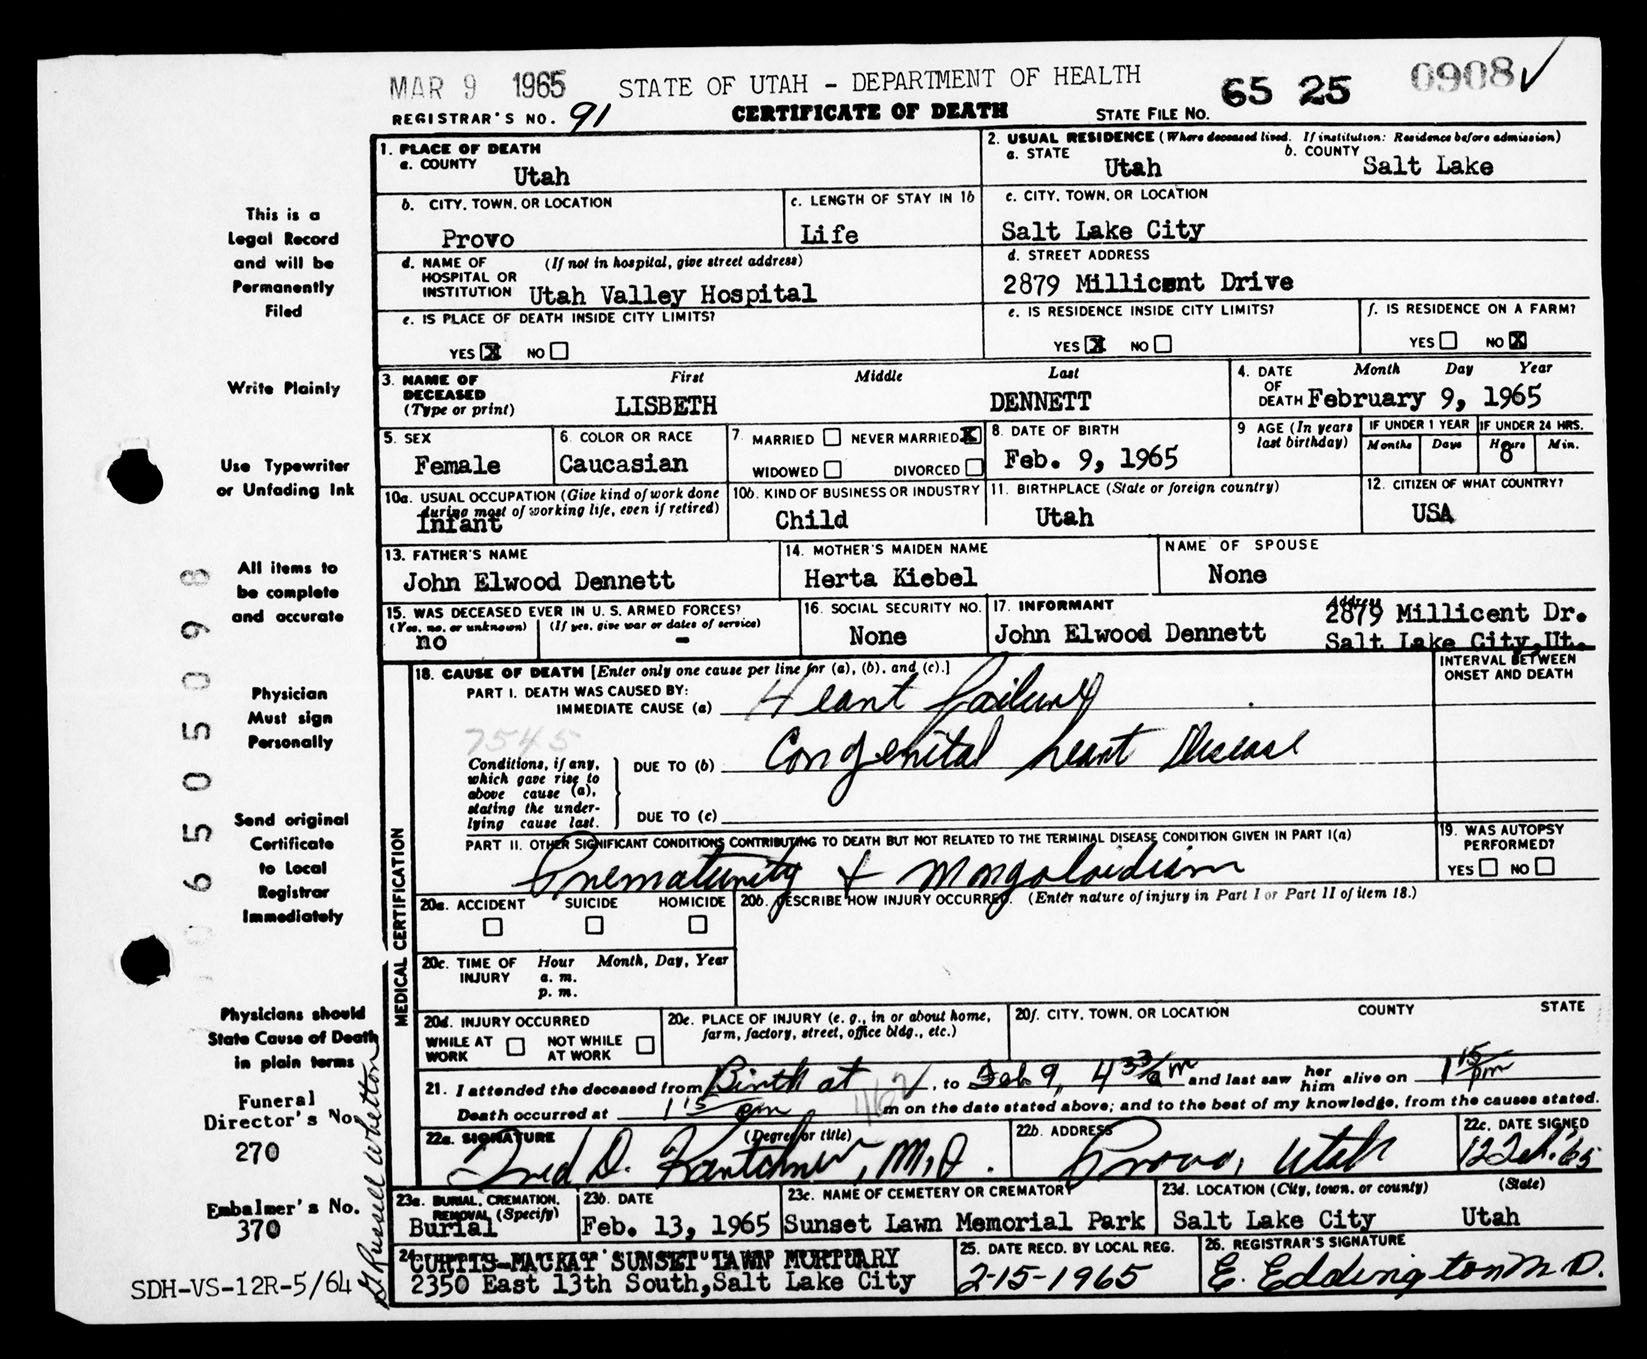 MAR 9 1965 STATE OF UTAH - DEPARTMENT OF HEALTH 65 25 0908 ✓
REGISTRAR'S NO. 91 CERTIFICATE OF DEATH STATE FILE NO.
1. PLACE OF DEATH
a. COUNTY
Utah
2. USUAL RESIDENCE (Where deceased lived. If institution: Residence before admission)
a. STATE Utah b. COUNTY Salt Lake
b. CITY, TOWN, OR LOCATION
Provo
c. LENGTH OF STAY IN 1b
Life
c. CITY, TOWN, OR LOCATION
Salt Lake City
d. NAME OF (If not in hospital, give street address)
HOSPITAL OR
INSTITUTION Utah Valley Hospital
d. STREET ADDRESS
2879 Millicent Drive
e. IS PLACE OF DEATH INSIDE CITY LIMITS?
YES X NO
e. IS RESIDENCE INSIDE CITY LIMITS?
YES X NO
f. IS RESIDENCE ON A FARM?
YES NO X
3. NAME OF DECEASED First Middle Last
(Type or print) LISBETH DENNETT
4. DATE OF DEATH Month Day Year
February 9, 1965
5. SEX
Female
6. COLOR OR RACE
Caucasian
7 MARRIED NEVER MARRIED X
WIDOWED DIVORCED
8. DATE OF BIRTH
Feb. 9, 1965
9 AGE (In years last birthday)
IF UNDER 1 YEAR IF UNDER 24 HRS.
Months Days Hours Min.
8
10a. USUAL OCCUPATION (Give kind of work done
during most of working life, even if retired)
Infant
10b. KIND OF BUSINESS OR INDUSTRY
Child
11. BIRTHPLACE (State or foreign country)
Utah
12. CITIZEN OF WHAT COUNTRY?
USA
13. FATHER'S NAME
John Elwood Dennett
14. MOTHER'S MAIDEN NAME
Herta Kiebel
NAME OF SPOUSE
None
15. WAS DECEASED EVER IN U. S. ARMED FORCES?
(Yes, no, or unknown) (If yes, give war or dates of service)
no -
16. SOCIAL SECURITY NO.
None
17. INFORMANT Address
John Elwood Dennett 2879 Millicent Dr.
Salt Lake City, Ut.
18. CAUSE OF DEATH [Enter only one cause per line for (a), (b), and (c).]
INTERVAL BETWEEN
ONSET AND DEATH
PART I. DEATH WAS CAUSED BY:
IMMEDIATE CAUSE (a) Heart failure
7545
Conditions, if any,
which gave rise to
above cause (a),
stating the under-
lying cause last.
DUE TO (b) Congenital heart Disease
DUE TO (c)
PART II. OTHER SIGNIFICANT CONDITIONS CONTRIBUTING TO DEATH BUT NOT RELATED TO THE TERMINAL DISEASE CONDITION GIVEN IN PART I(a)
Prematurity + Mongoloidism
19. WAS AUTOPSY
PERFORMED?
YES NO
20a. ACCIDENT SUICIDE HOMICIDE
20b. DESCRIBE HOW INJURY OCCURRED. (Enter nature of injury in Part I or Part II of item 18.)
20c. TIME OF INJURY Hour Month, Day, Year
a. m.
p. m.
20d. INJURY OCCURRED
WHILE AT WORK NOT WHILE AT WORK
20e. PLACE OF INJURY (e. g., in or about home,
farm, factory, street, office bldg., etc.)
20f. CITY, TOWN, OR LOCATION COUNTY STATE
21. I attended the deceased from Birth at, to Feb 9, 4 33/am and last saw her him alive on 1 15/pm
Death occurred at 1 15 pm m on the date stated above; and to the best of my knowledge, from the causes stated.
22a. SIGNATURE (Degree or title)
Fred D. Kartchner, M.D.
22b. ADDRESS
Provo, Utah
22c. DATE SIGNED
12 Feb. '65
23a. BURIAL, CREMATION,
REMOVAL (Specify)
Burial
23b. DATE
Feb. 13, 1965
23c. NAME OF CEMETERY OR CREMATORY
Sunset Lawn Memorial Park
23d. LOCATION (City, town, or county) (State)
Salt Lake City Utah
24 CURTIS-MACKAY SUNSET LAWN MORTUARY
2350 East 13th South, Salt Lake City
25. DATE RECD. BY LOCAL REG.
2-15-1965
26. REGISTRAR'S SIGNATURE
E. Eddington M.D.
MEDICAL CERTIFICATION
This is a
Legal Record
and will be
Permanently
Filed
Write Plainly
Use Typewriter
or Unfading Ink
All items to
be complete
and accurate
Physician
Must sign
Personally
Send original
Certificate
to Local
Registrar
Immediately
Physicians should
State Cause of Death
in plain terms
Funeral
Director's No.
270
Embalmer's No.
370
SDH-VS-12R-5/64
Russell Whetton
650505098